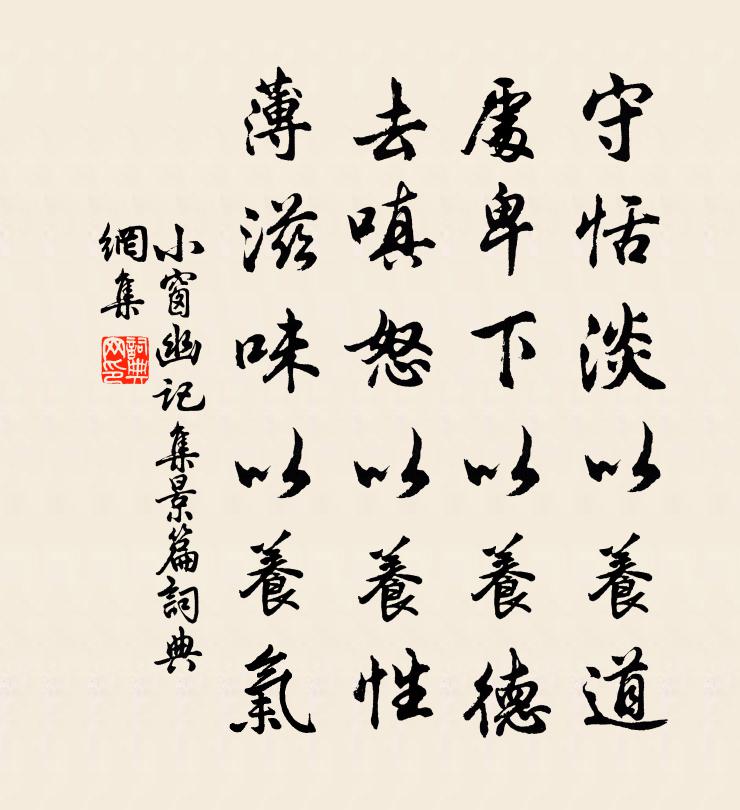 守恬淡以養道
處卑下以養德
去嗔怒以養性
薄滋味以養氣
小窗幽记集景篇詞典
網集
詞典
网印